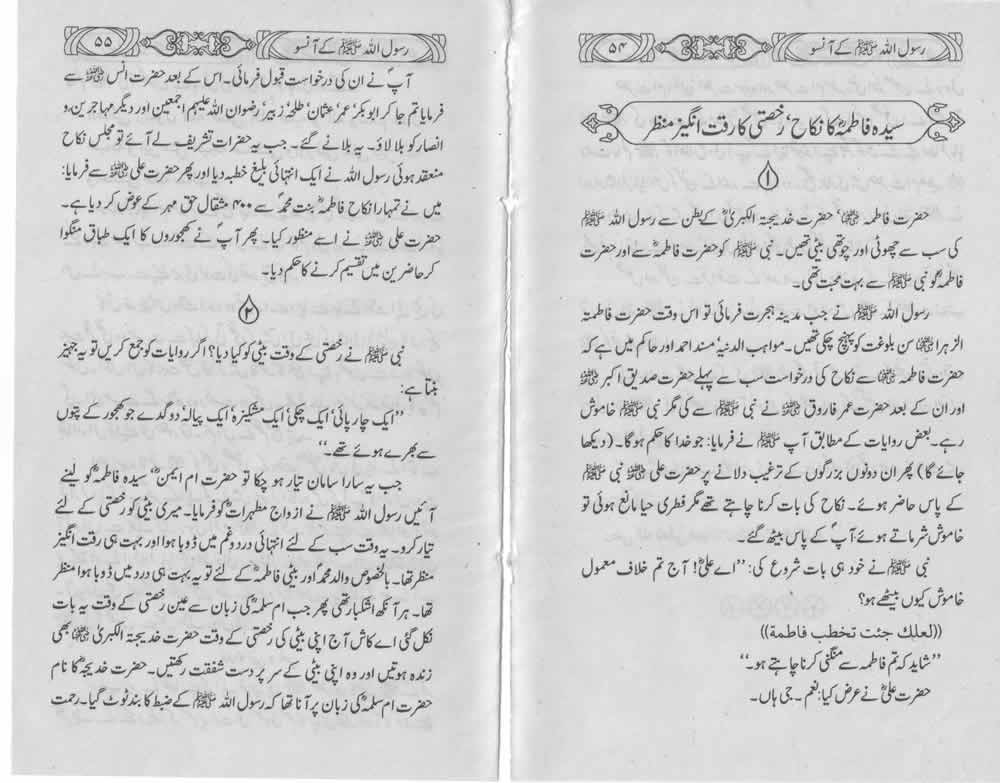 رسول اللہ ﷺ کے آنسو
۵۴
سیدہ فاطمہؓ کا نکاح، رخصتی کا رقت انگیز منظر
۱
حضرت فاطمہ ؓ، حضرت خدیجۃ الکبریٰؓ کے بطن سے رسول اللہ ﷺ
کی سب سے چھوٹی اور چوتھی بیٹی تھیں۔ نبی ﷺ کو حضرت فاطمہؓ سے اور حضرت
فاطمہؓ کو نبی ﷺ سے بہت محبت تھی۔
رسول اللہ ﷺ نے جب مدینہ ہجرت فرمائی تو اس وقت حضرت فاطمۃ
الزہرا ؓ سن بلوغت کو پہنچ چکی تھیں۔ مواہب الدنیہ، مسند احمد اور حاکم میں ہے کہ
حضرت فاطمہ ؓ سے نکاح کی درخواست سب سے پہلے حضرت صدیق اکبر ؓ
اور ان کے بعد حضرت عمر فاروق ؓ نے نبی ﷺ سے کی مگر نبی ﷺ خاموش
رہے۔ بعض روایات کے مطابق آپ ﷺ نے فرمایا: جو خدا کا حکم ہوگا۔ (دیکھا
جائے گا) پھر ان دونوں بزرگوں کے ترغیب دلانے پر حضرت علی ؓ نبی ﷺ
کے پاس حاضر ہوئے۔ نکاح کی بات کرنا چاہتے تھے مگر فطری حیا مانع ہوئی تو
خاموش شرماتے ہوئے آپؐ کے پاس بیٹھ گئے۔
نبی ﷺ نے خود ہی بات شروع کی: ’’اے علیؓ! آج تم خلاف معمول
خاموش کیوں بیٹھے ہو؟
((لعلك جئت تخطب فاطمة))
’’شاید کہ تم فاطمہ سے منگنی کرنا چاہتے ہو۔‘‘
حضرت علیؓ نے عرض کیا: نعم۔ جی ہاں۔
رسول اللہ ﷺ کے آنسو
۵۵
آپؐ نے ان کی درخواست قبول فرمائی۔ اس کے بعد حضرت انس ؓ سے
فرمایا تم جا کر ابوبکر، عمر، عثمان، طلحہ، زبیر، رضوان اللہ علیہم اجمعین اور دیگر مہاجرین و
انصار کو بلا لاؤ۔ یہ بلانے گئے۔ جب یہ حضرات تشریف لے آئے تو مجلس نکاح
منعقد ہوئی رسول اللہ نے ایک انتہائی بلیغ خطبہ دیا اور پھر حضرت علی سے فرمایا:
میں نے تمہارا نکاح فاطمہؓ بنت محمدؐ سے ۴۰۰ مثقال حق مہر کے عوض کر دیا ہے۔
حضرت علی ؓ نے اسے منظور کیا۔ پھر آپؐ نے کھجوروں کا ایک طباق منگوا
کر حاضرین میں تقسیم کرنے کا حکم دیا۔
۲
نبی ﷺ نے رخصتی کے وقت بیٹی کو کیا دیا؟ اگر روایات کو جمع کریں تو یہ جہیز
بنتا ہے:
’’ایک چارپائی، ایک چکی، ایک مشکیزہ، ایک پیالہ، دو گدے جو کھجور کے پتوں
سے بھرے ہوئے تھے۔‘‘
جب یہ سارا سامان تیار ہو چکا تو حضرت ام ایمنؓ، سیدہ فاطمہؓ کو لینے
آئیں رسول اللہ ﷺ نے ازواج مطہراتؓ کو فرمایا۔ میری بیٹی کو رخصتی کے لئے
تیار کرو۔ یہ وقت سب کے لئے انتہائی درد و غم میں ڈوبا ہوا اور بہت ہی رقت انگیز
منظر تھا۔ بالخصوص والد محمدؐ اور بیٹی فاطمہؓ کے لئے تو یہ بہت ہی درد میں ڈوبا ہوا منظر
تھا۔ ہر آنکھ اشکبار تھی پھر جب ام سلمہؓ کی زبان سے عین رخصتی کے وقت یہ بات
نکل گئی اے کاش آج اپنی بیٹی کی رخصتی کے وقت حضرت خدیجۃ الکبریٰ ؓ بھی
زندہ ہوتیں اور وہ اپنی بیٹی کے سر پر دست شفقت رکھتیں۔ حضرت خدیجہؓ کا نام
حضرت ام سلمہؓ کی زبان پر آنا تھا کہ رسول اللہ ﷺ کے ضبط کا بند ٹوٹ گیا۔ رحمت